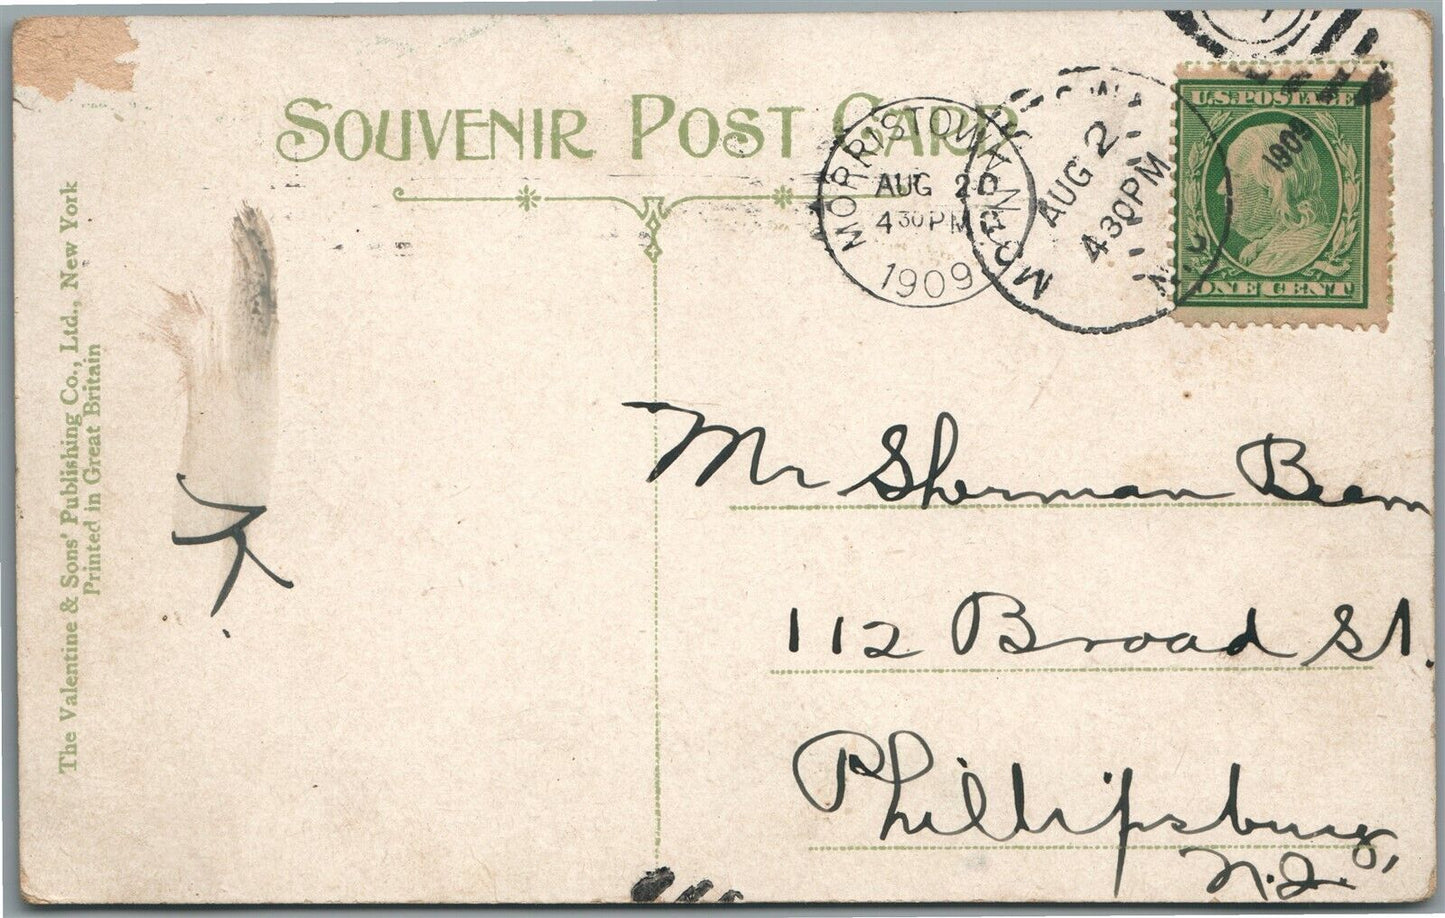 SOUVENIR POST CARD
The Valentine & Sons' Publishing Co., Ltd., New York
Printed in Great Britain
MORRISTOWN
AUG 2
4 30 PM
1909
AUG 2
4 30 PM
1909
N.J.
U.S. POSTAGE
ONE CENT
K.
Mr Sherman Beam
112 Broad St.
Phillipsburg,
N.J.